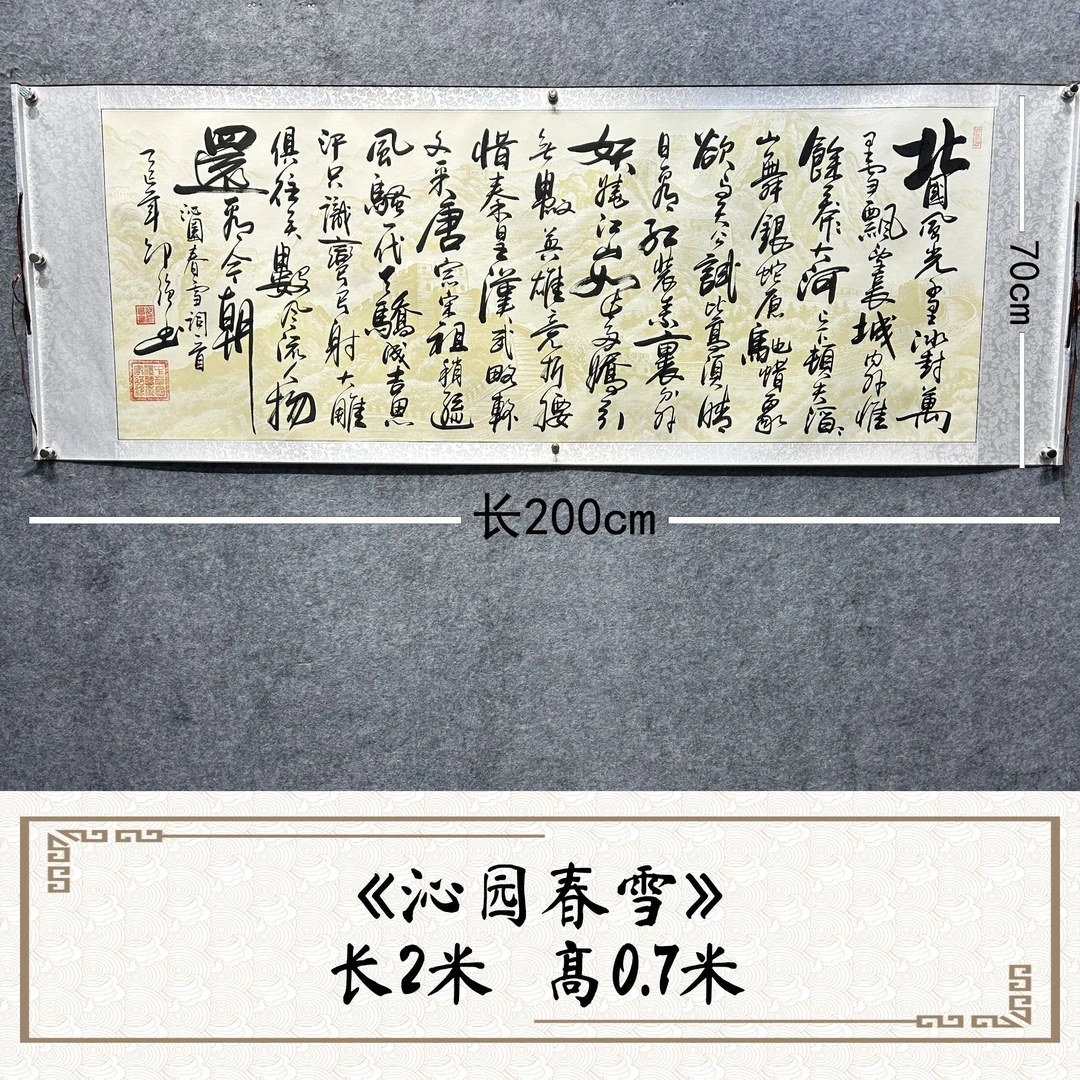 北國風光千里冰封萬
里雪飄望長城內外惟
餘莽莽大河上下頓失滔滔
山舞銀蛇原馳蜡象
欲與天公試比高須晴
日看紅裝素裹分外
妖嬈江山如此多嬌引
無數英雄競折腰
惜秦皇漢武略輸
文采唐宗宋祖稍遜
風騷一代天驕成吉思
汗只識彎弓射大雕
俱往矣數風流人物
還看今朝
沁園春雪詞首
乙巳年
70cm
长200cm
《沁园春雪》
长2米 高0.7米